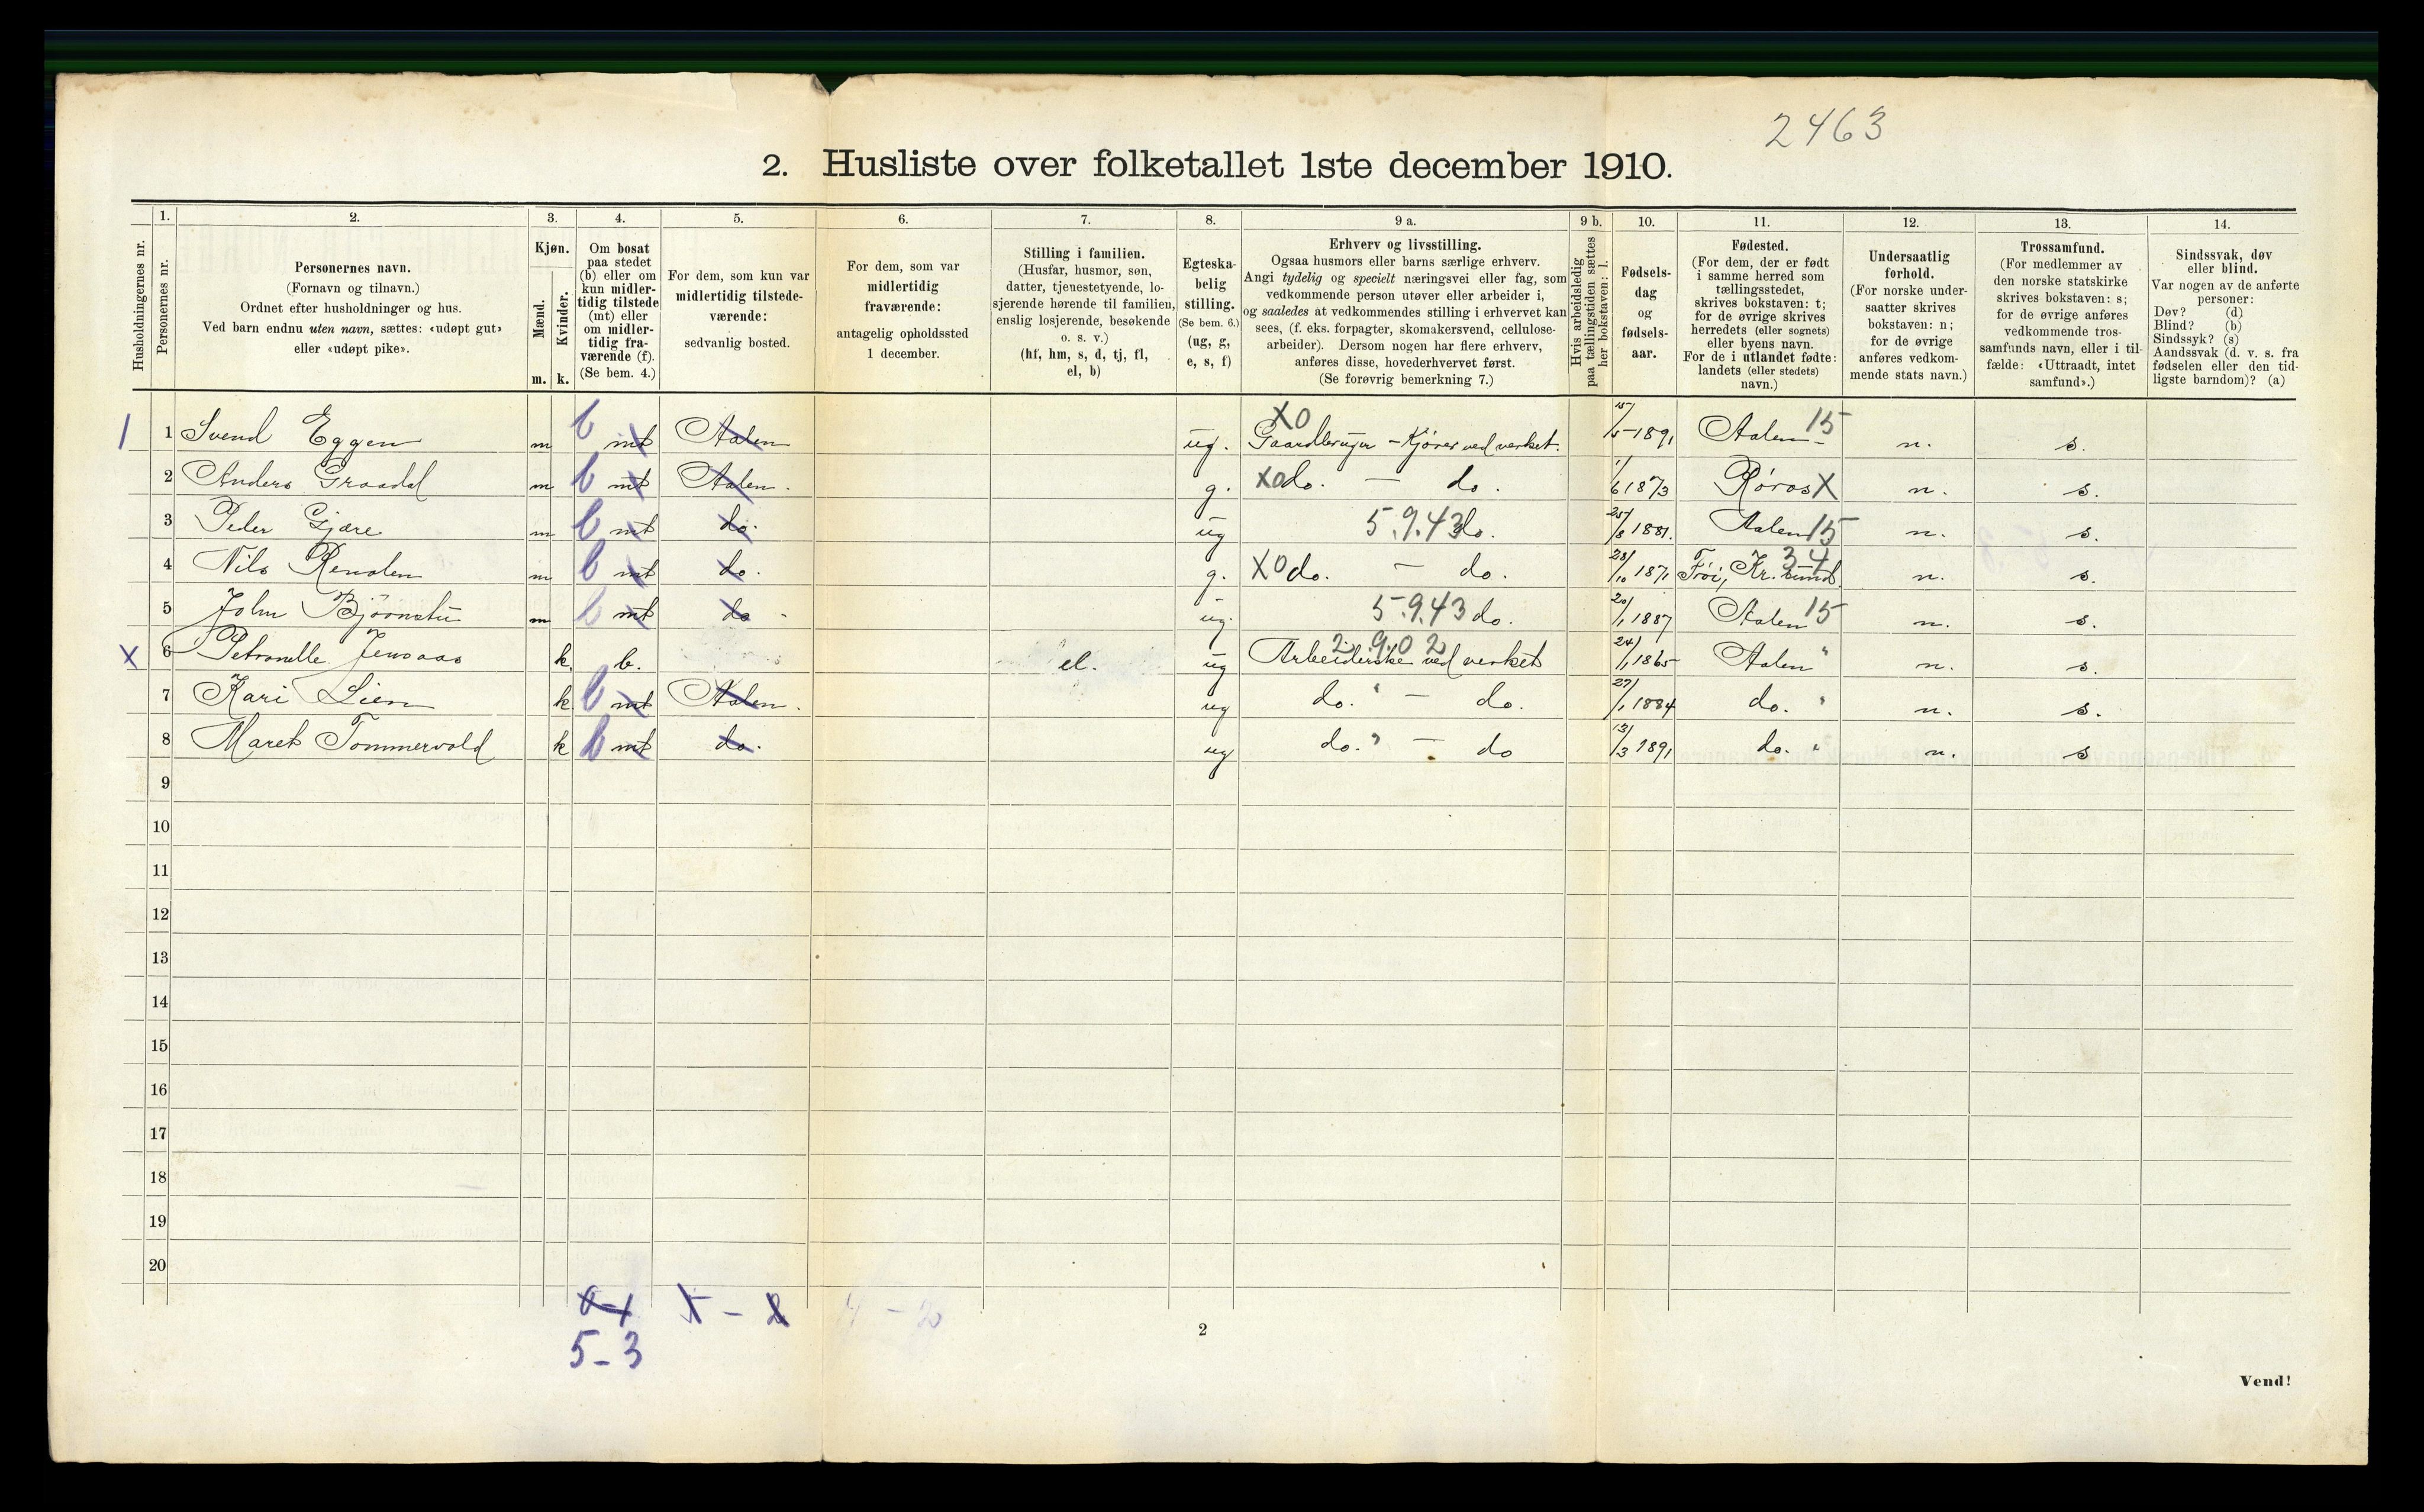 2463
2. Husliste over folketallet 1ste december 1910.
Husholdningernes nr.
1. Personernes nr.
2. Personernes navn. (Fornavn og tilnavn.) Ordnet efter husholdninger og hus. Ved barn endnu uten navn, sættes: «udøpt gut» eller «udøpt pike».
3. Kjøn. Mænd. m. Kvinder. k.
4. Om bosat paa stedet (b) eller om kun midlertidig tilstede (mt) eller om midlertidig fraværende (f). (Se bem. 4.)
5. For dem, som kun var midlertidig tilstedeværende: sedvanlig bosted.
6. For dem, som var midlertidig fraværende: antagelig opholdssted 1 december.
7. Stilling i familien. (Husfar, husmor, søn, datter, tjenestetyende, losjerende hørende til familien, enslig losjerende, besøkende o. s. v.) (hf, hm, s, d, tj, fl, el, b)
8. Egteskabelig stilling. (Se bem. 6.) (ug, g, e, s, f)
9 a. Erhverv og livsstilling. Ogsaa husmors eller barns særlige erhverv. Angi tydelig og specielt næringsvei eller fag, som vedkommende person utøver eller arbeider i, og saaledes at vedkommendes stilling i erhvervet kan sees, (f. eks. forpagter, skomakersvend, cellulosearbeider). Dersom nogen har flere erhverv, anføres disse, hovederhvervet først. (Se forøvrig bemerkning 7.)
9 b. Hvis arbeidsledig paa tællingstiden sættes her bokstaven: l.
10. Fødselsdag og fødselsaar.
11. Fødested. (For dem, der er født i samme herred som tællingsstedet, skrives bokstaven: t; for de øvrige skrives herredets (eller sognets) eller byens navn. For de i utlandet fødte: landets (eller stedets) navn.)
12. Undersaatlig forhold. (For norske undersaatter skrives bokstaven: n; for de øvrige anføres vedkommende stats navn.)
13. Trossamfund. (For medlemmer av den norske statskirke skrives bokstaven: s; for de øvrige anføres vedkommende trossamfunds navn, eller i tilfælde: «Uttraadt, intet samfund».)
14. Sindssvak, døv eller blind. Var nogen av de anførte personer: Døv? (d) Blind? (b) Sindssyk? (s) Aandssvak (d. v. s. fra fødselen eller den tidligste barndom)? (a)
1 1 Svend Eggen m b mt Aalen ug. X0 Gaardbruger - Kjører ved verket. 15/5 1891 Aalen 15 n. s.
2 Anders Graadal m b mt Aalen. g. X0 do. — do. 1/6 1873 Røros X n. s.
3 Peder Gjære m b mt do. ug 5.9.43 do. 25/8 1881. Aalen 15 n. s.
4 Nils Renolen m b mt do. g. X0 do. — do. 28/10 1871 Frøi, Kr.sund. 34 n. s.
5 John Bjørnstu m b mt do - ug. 5.9.43 do. 20/1 1887 Aalen 15 n. s.
X 6 Petronelle Jensaas k. b. el. ug 2.9.02 Arbeiderske ved verket 24/1 1865 Aalen " n. s.
7 Kari Lien k b mt Aalen. ug do. " — do. 27/1 1884 do. " n. s.
8 Maret Tommervold k b mt do. ug do. " — do 13/3 1891 do. " n. s
9
10
11
12
13
14
15
16
17
18
19
20
5-3
2
Vend!